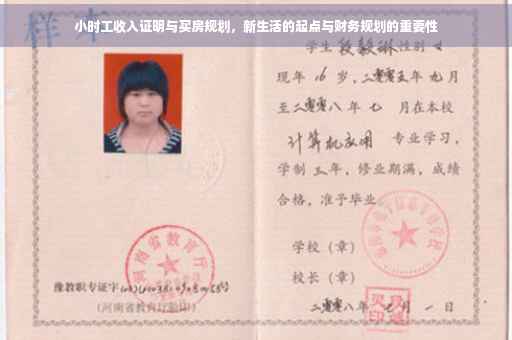 小时工收入证明与买房规划，新生活的起点与财务规划的重要性
样本
学生段毅琳性别女
现年 16 岁，二零零五年 九月
至二零零八 年 七 月在本校
计算机应用 专业学习，
学制 三 年，修业期满，成绩
合格，准予毕业
学校（章）
校长（章）
河南省教育厅
豫教职专证字
（河南省教育厅验印）
二零零八年 七 月 一 日